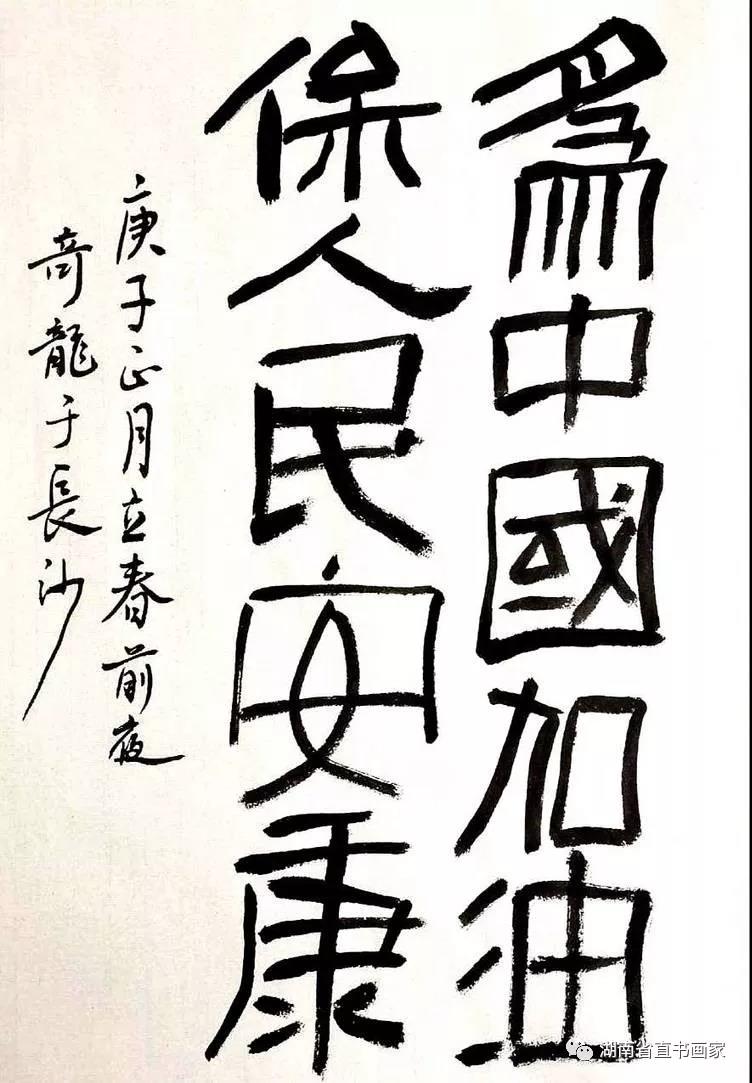 為中國加油
保人民安康
庚子正月立春前夜
奇龍于長沙
湖南省直书画家